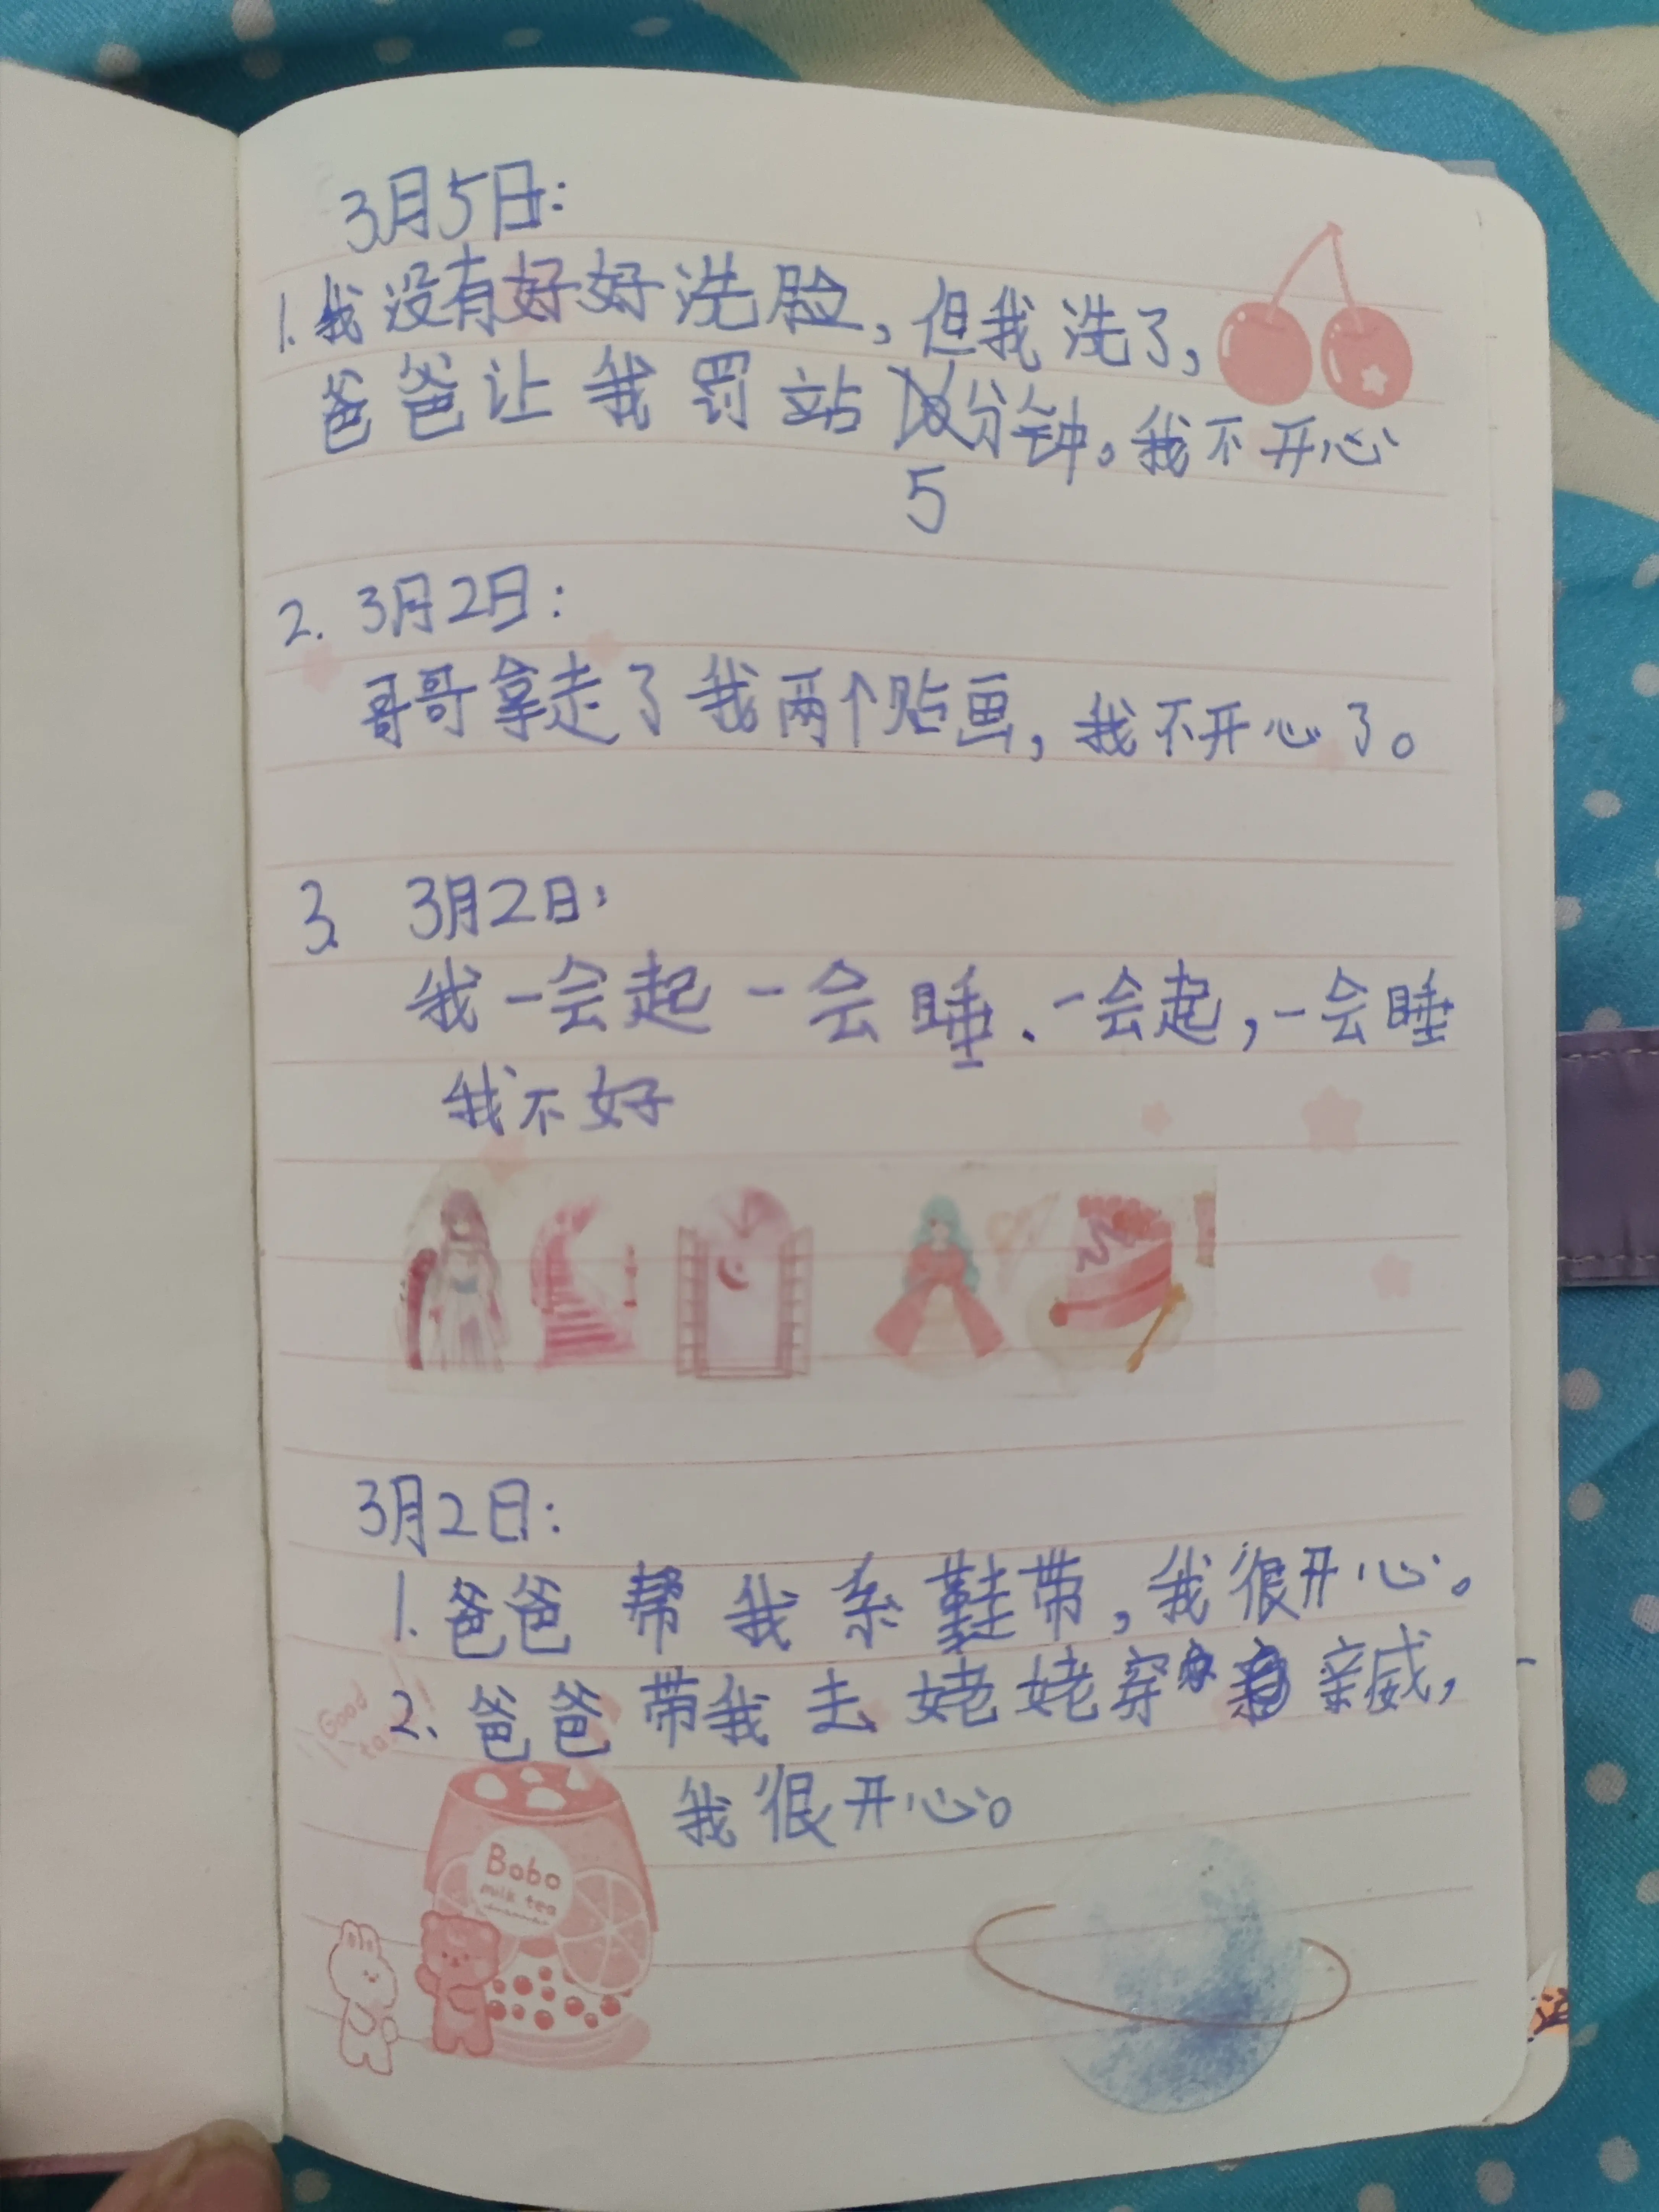 3月5日:
1.我没有好好洗脸,但我洗了,
爸爸让我罚站分钟。我不开心
5
2. 3月2日:
哥哥拿走了我两个贴画,我不开心了。
3. 3月2日:
我一会起一会睡.一会起,一会睡
我不好
3月2日:
1.爸爸帮我系鞋带,我很开心。
2.爸爸带我去姥姥穿亲戚,
我很开心。
Good
Bobo
milk tea